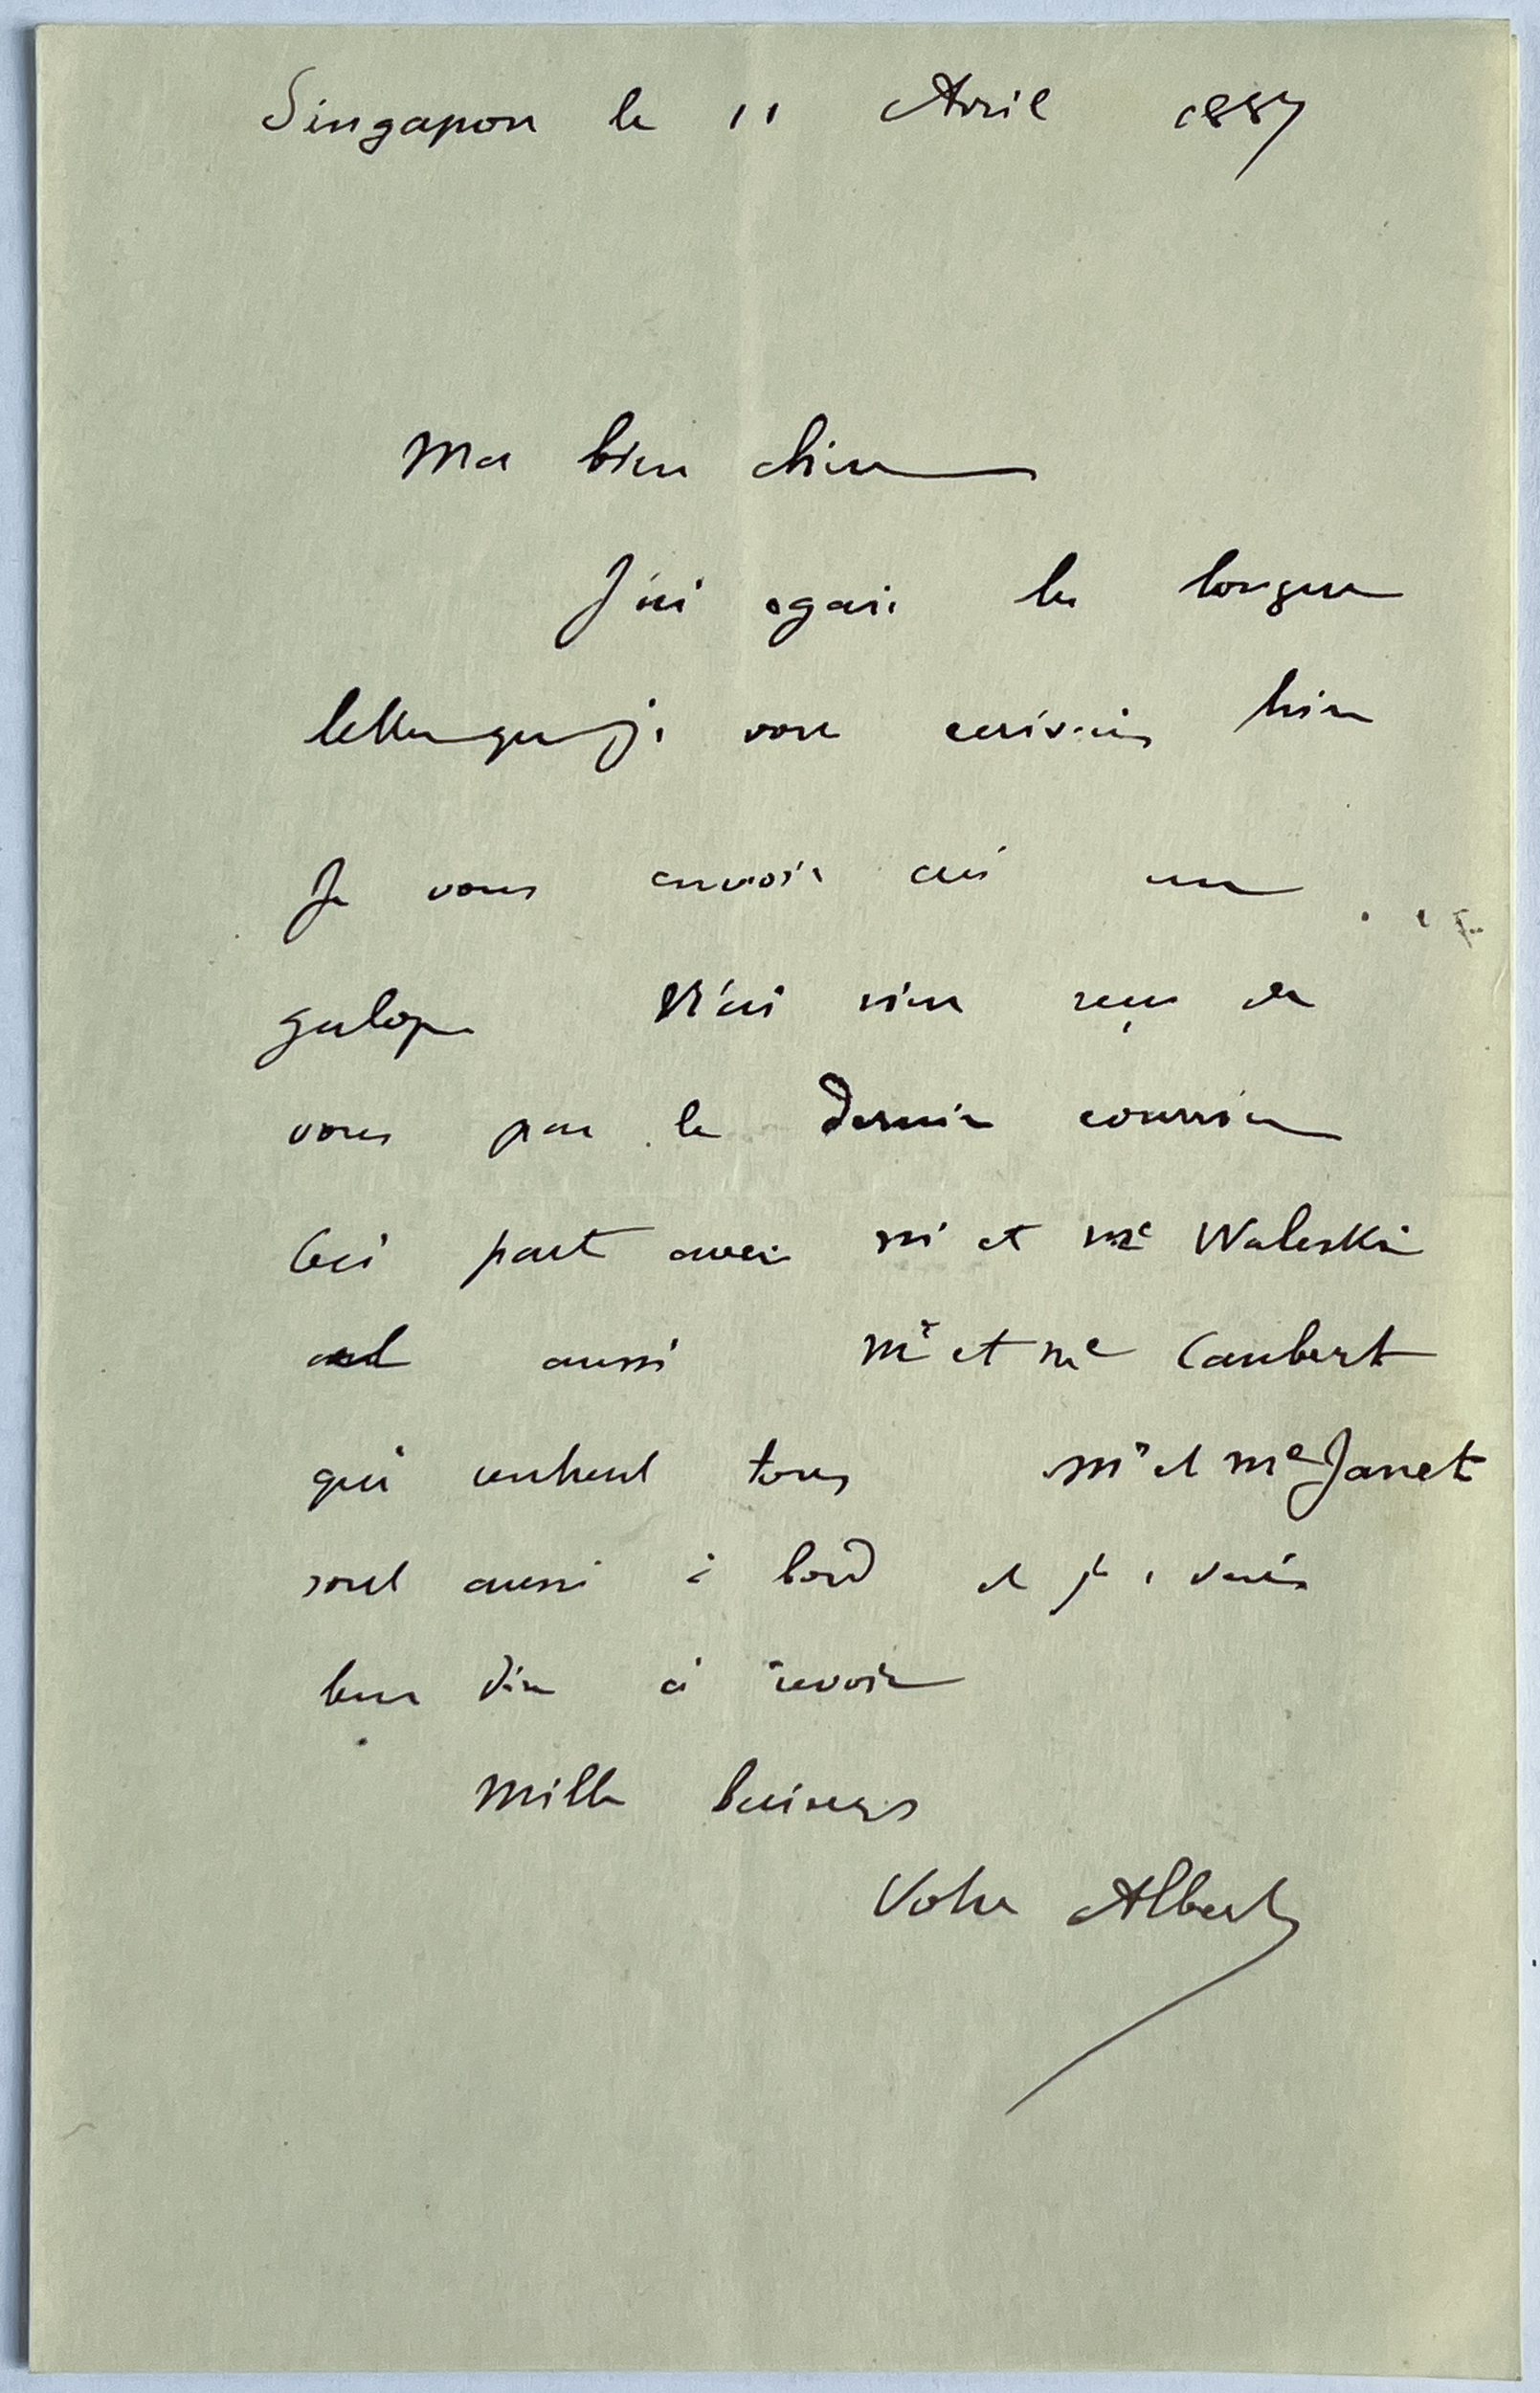 Singapore le 11 Avril 1887
Ma bien chère
J'ai egaré la longue
lettre que je vous ecrivais hier
Je vous envoie ceci au
galop N'ai rien reçu de
vous par le dernier courrier
Ceci part avec Mr et Me Waleski
et aussi Mr et Me Caubert
qui rentrent tous Mr et Me Janet
sont aussi à bord et je vais
leur dire à revoir
Mille baisers
Votre Albert